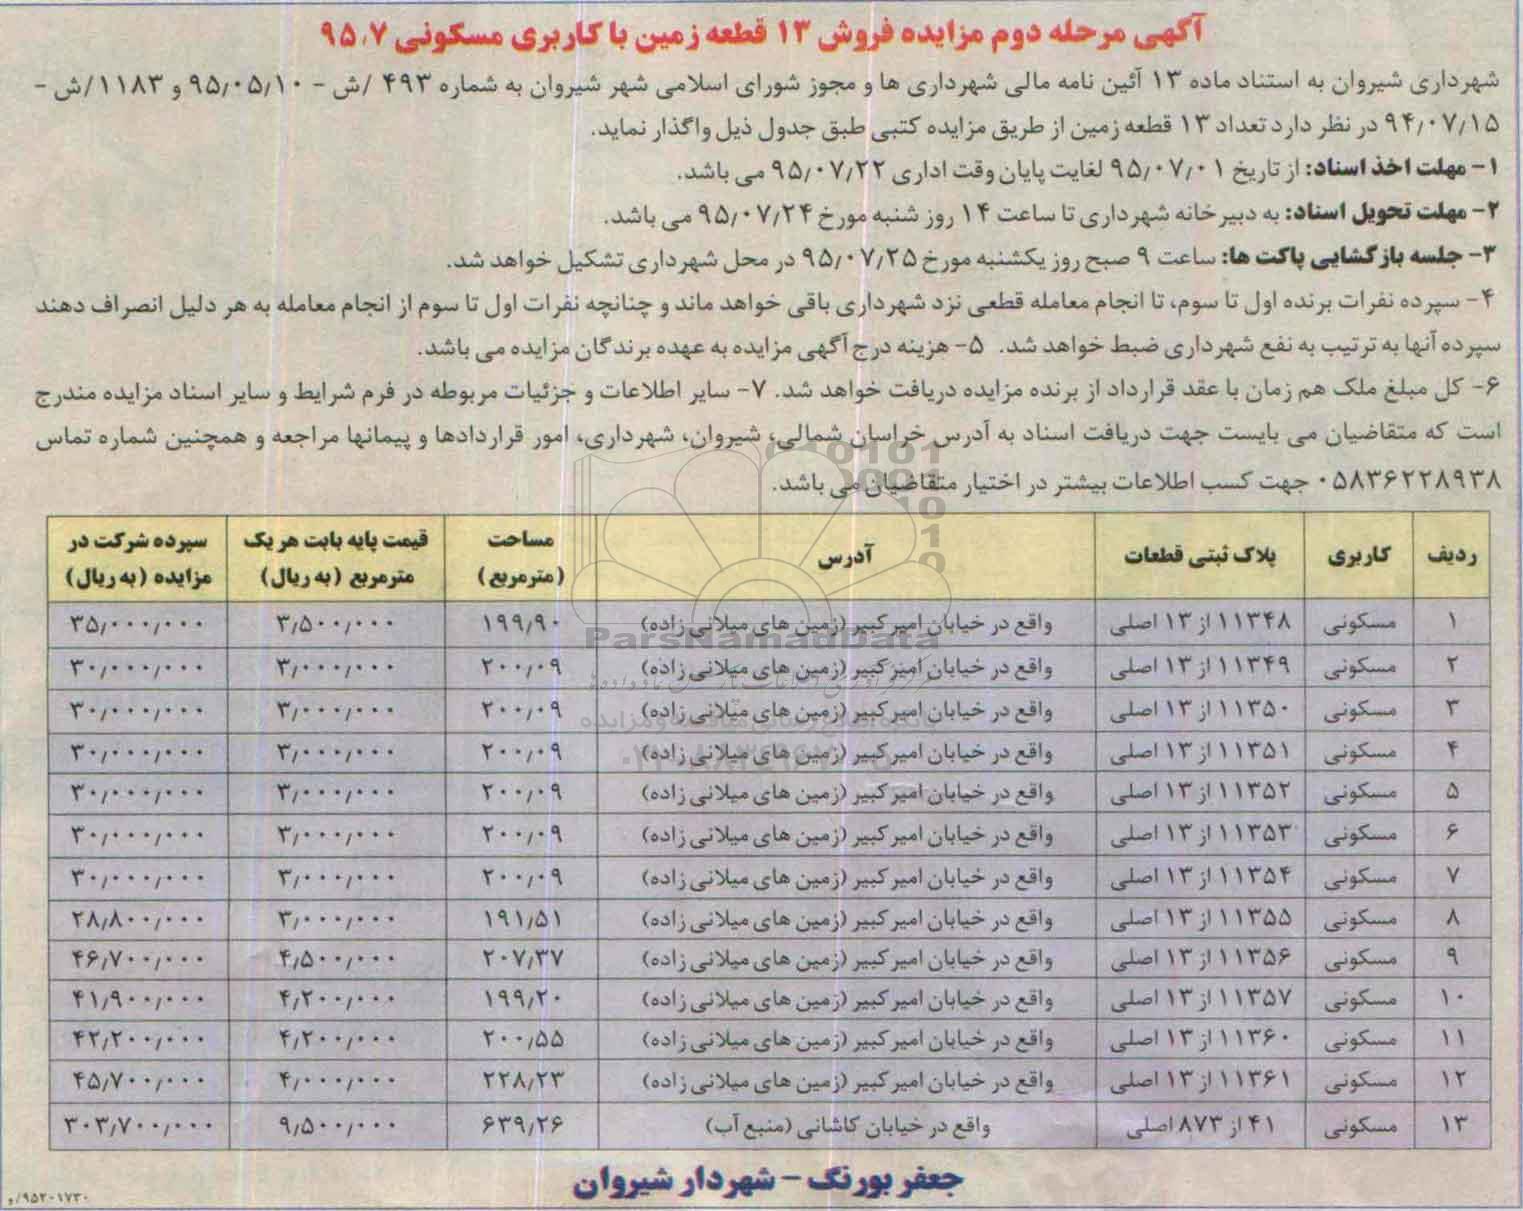 آگهی مرحله دوم مزایده فروش ۱۳ قطعه زمین با کاربری مسکونی ۹۵٫۷
شهرداری شیروان به استناد ماده ۱۳ آئین نامه مالی شهرداری ها و مجوز شورای اسلامی شهر شیروان به شماره ۴۹۳ /ش - ۹۵٫۰۵٫۱۰ و ۱۱۸۳/ش -
۹۴٫۰۷٫۱۵ در نظر دارد تعداد ۱۳ قطعه زمین از طریق مزایده کتبی طبق جدول ذیل واگذار نماید.
۱- مهلت اخذ اسناد: از تاریخ ۹۵٫۰۷٫۰۱ لغایت پایان وقت اداری ۹۵٫۰۷٫۲۲ می باشد.
۲- مهلت تحویل اسناد: به دبیرخانه شهرداری تا ساعت ۱۴ روز شنبه مورخ ۹۵٫۰۷٫۲۴ می باشد.
۳- جلسه بازگشایی پاکت ها: ساعت ۹ صبح روز یکشنبه مورخ ۹۵٫۰۷٫۲۵ در محل شهرداری تشکیل خواهد شد.
۴- سپرده نفرات برنده اول تا سوم، تا انجام معامله قطعی نزد شهرداری باقی خواهد ماند و چنانچه نفرات اول تا سوم از انجام معامله به هر دلیل انصراف دهند
سپرده آنها به ترتیب به نفع شهرداری ضبط خواهد شد. ۵- هزینه درج آگهی مزایده به عهده برندگان مزایده می باشد.
۶- کل مبلغ ملک هم زمان با عقد قرارداد از برنده مزایده دریافت خواهد شد. ۷- سایر اطلاعات و جزئیات مربوطه در فرم شرایط و سایر اسناد مزایده مندرج
است که متقاضیان می بایست جهت دریافت اسناد به آدرس خراسان شمالی، شیروان، شهرداری، امور قراردادها و پیمانها مراجعه و همچنین شماره تماس
۰۵۸۳۶۲۲۸۹۳۸ جهت کسب اطلاعات بیشتر در اختیار متقاضیان می باشد.
ردیف کاربری پلاک ثبتی قطعات آدرس مساحت (مترمربع) قیمت پایه بابت هر یک مترمربع (به ریال) سپرده شرکت در مزایده (به ریال)
۱ مسکونی ۱۱۳۴۸ از ۱۳ اصلی واقع در خیابان امیرکبیر (زمین های میلانی زاده) ۱۹۹٫۹۰ ۳٫۵۰۰٫۰۰۰ ۳۵٫۰۰۰٫۰۰۰
۲ مسکونی ۱۱۳۴۹ از ۱۳ اصلی واقع در خیابان امیرکبیر (زمین های میلانی زاده) ۲۰۰٫۰۹ ۳٫۰۰۰٫۰۰۰ ۳۰٫۰۰۰٫۰۰۰
۳ مسکونی ۱۱۳۵۰ از ۱۳ اصلی واقع در خیابان امیرکبیر (زمین های میلانی زاده) ۲۰۰٫۰۹ ۳٫۰۰۰٫۰۰۰ ۳۰٫۰۰۰٫۰۰۰
۴ مسکونی ۱۱۳۵۱ از ۱۳ اصلی واقع در خیابان امیرکبیر (زمین های میلانی زاده) ۲۰۰٫۰۹ ۳٫۰۰۰٫۰۰۰ ۳۰٫۰۰۰٫۰۰۰
۵ مسکونی ۱۱۳۵۲ از ۱۳ اصلی واقع در خیابان امیرکبیر (زمین های میلانی زاده) ۲۰۰٫۰۹ ۳٫۰۰۰٫۰۰۰ ۳۰٫۰۰۰٫۰۰۰
۶ مسکونی ۱۱۳۵۳ از ۱۳ اصلی واقع در خیابان امیرکبیر (زمین های میلانی زاده) ۲۰۰٫۰۹ ۳٫۰۰۰٫۰۰۰ ۳۰٫۰۰۰٫۰۰۰
۷ مسکونی ۱۱۳۵۴ از ۱۳ اصلی واقع در خیابان امیرکبیر (زمین های میلانی زاده) ۲۰۰٫۰۹ ۳٫۰۰۰٫۰۰۰ ۳۰٫۰۰۰٫۰۰۰
۸ مسکونی ۱۱۳۵۵ از ۱۳ اصلی واقع در خیابان امیرکبیر (زمین های میلانی زاده) ۱۹۱٫۵۱ ۳٫۰۰۰٫۰۰۰ ۲۸٫۸۰۰٫۰۰۰
۹ مسکونی ۱۱۳۵۶ از ۱۳ اصلی واقع در خیابان امیرکبیر (زمین های میلانی زاده) ۲۰۷٫۳۷ ۴٫۵۰۰٫۰۰۰ ۴۶٫۷۰۰٫۰۰۰
۱۰ مسکونی ۱۱۳۵۷ از ۱۳ اصلی واقع در خیابان امیرکبیر (زمین های میلانی زاده) ۱۹۹٫۲۰ ۴٫۲۰۰٫۰۰۰ ۴۱٫۹۰۰٫۰۰۰
۱۱ مسکونی ۱۱۳۶۰ از ۱۳ اصلی واقع در خیابان امیرکبیر (زمین های میلانی زاده) ۲۰۰٫۵۵ ۴٫۲۰۰٫۰۰۰ ۴۲٫۲۰۰٫۰۰۰
۱۲ مسکونی ۱۱۳۶۱ از ۱۳ اصلی واقع در خیابان امیرکبیر (زمین های میلانی زاده) ۲۲۸٫۲۳ ۴٫۰۰۰٫۰۰۰ ۴۵٫۷۰۰٫۰۰۰
۱۳ مسکونی ۴۱ از ۸۷۳ اصلی واقع در خیابان کاشانی (منبع آب) ۶۳۹٫۲۶ ۹٫۵۰۰٫۰۰۰ ۳۰۳٫۷۰۰٫۰۰۰
جعفر بورنگ - شهردار شیروان
۹۵۲۰۱۷۳۰/و
ParsNamadData